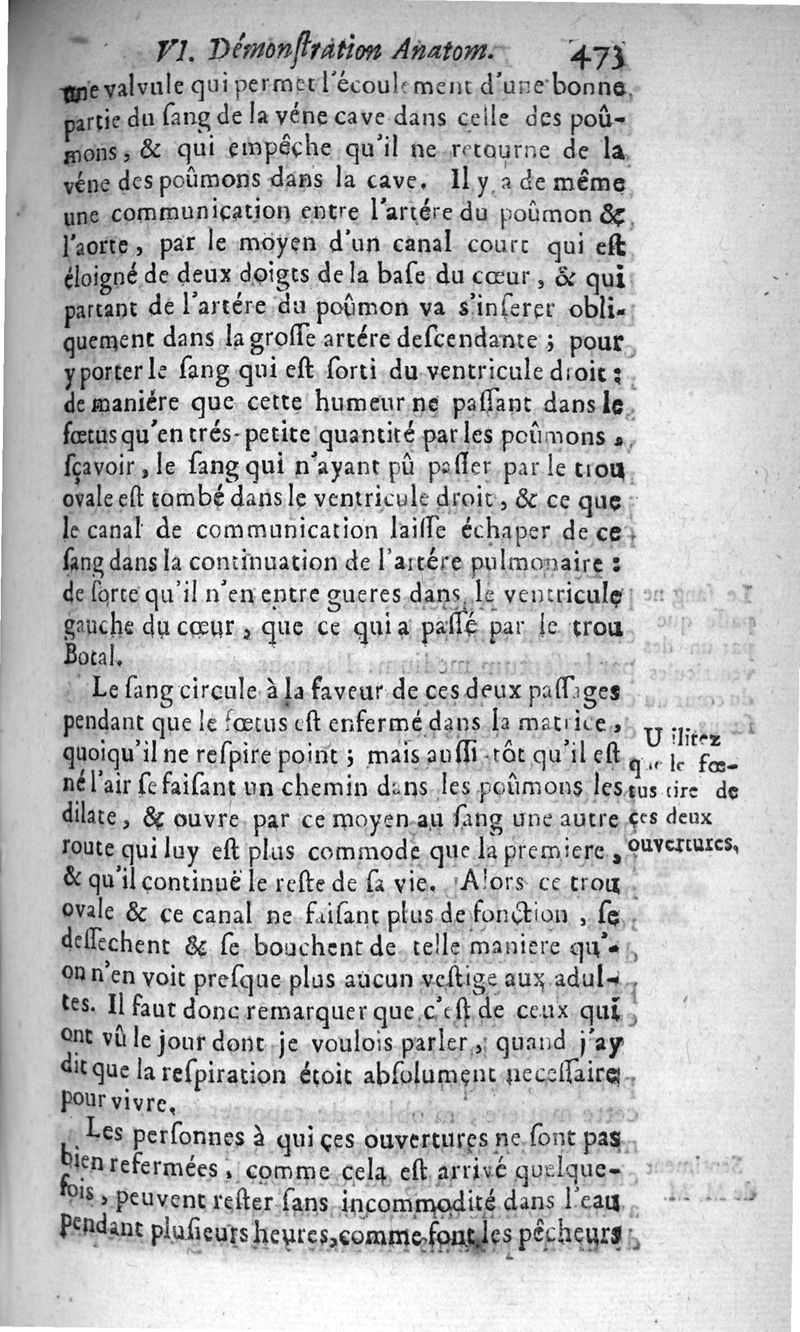 VI. Démonſtration Anatom. 473
une valvule qui permet l'écoulement d'une bonne
partie du ſang de la véne cave dans celle des poû-
mons, & qui empêche qu'il ne retourne de la
véne des poûmons dans la cave. Il y a de même
une communication entre l'artére du poûmon &
l'aorte, par le moyen d'un canal court qui eſt
éloigné de deux doigts de la baſe du cœur, & qui
partant de l'artére du poûmon va s'inſerer obli-
quement dans la groſſe artére deſcendante ; pour
y porter le ſang qui eſt ſorti du ventricule droit :
de maniére que cette humeur ne paſſant dans le
fœtus qu'en trés-petite quantité par les poûmons,
ſçavoir, le ſang qui n'ayant pû paſſer par le trou
ovale eſt tombé dans le ventricule droit, & ce que
le canal de communication laiſſe échaper de ce
ſang dans la continuation de l'artére pulmonaire :
de ſorte qu'il n'en entre gueres dans le ventricule
gauche du cœur, que ce qui a paſſé par le trou
Botal.
Le ſang circule à la faveur de ces deux paſſages
pendant que le fœtus eſt enfermé dans la matrice,
quoiqu'il ne reſpire point ; mais auſſi-tôt qu'il eſt
né l'air ſe faiſant un chemin dans les poûmons les
dilate, & ouvre par ce moyen au ſang une autre
route qui luy eſt plus commode que la premiere,
& qu'il continuë le reſte de ſa vie. Alors ce trou
ovale & ce canal ne faiſant plus de fonction, ſe
deſſechent & ſe bouchent de telle maniere qu'-
on n'en voit preſque plus aucun veſtige aux adul-
tes. Il faut donc remarquer que c'eſt de ceux qui
ont vû le jour dont je voulois parler, quand j'ay
dit que la reſpiration étoit abſolument neceſſaire
pour vivre.
Les perſonnes à qui ces ouvertures ne ſont pas
bien refermées, comme cela eſt arrivé quelque-
fois, peuvent reſter ſans incommodité dans l'eau
pendant pluſieurs heures, comme font les pêcheurs
Utilitez
que le fœ-
tus tire de
ces deux
ouvertures.